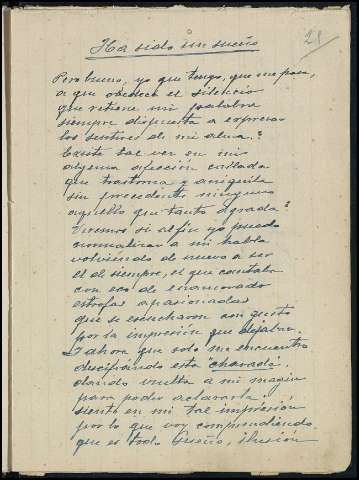 21
Ha sido un sueño
Pero bueno, yo que tengo, que me pasa,
a que obedece el silencio
que retiene mi palabra
siempre dispuesta a expresar
los sentires de mi alma.?
Existe tal vez en mi
alguna afección callada
que trastorna y aniquila
sin precedente ninguno
aquello que tanto agrada?
Veremos si al fin yo puedo
a mi habla
volviendo de nuevo a ser
el de siempre, el que cantaba
con eco de enamorado
estrofas apasionadas
que se escucharon con gusto
por la impresión que dejaba.
Y ahora que solo me encuentro
descifrando esta "charada"
dando vuelta a mi magín
para poder aclararla.
siento en mi tal impresión
por lo que voy comprendiendo
que es todo Sueño, ilusión